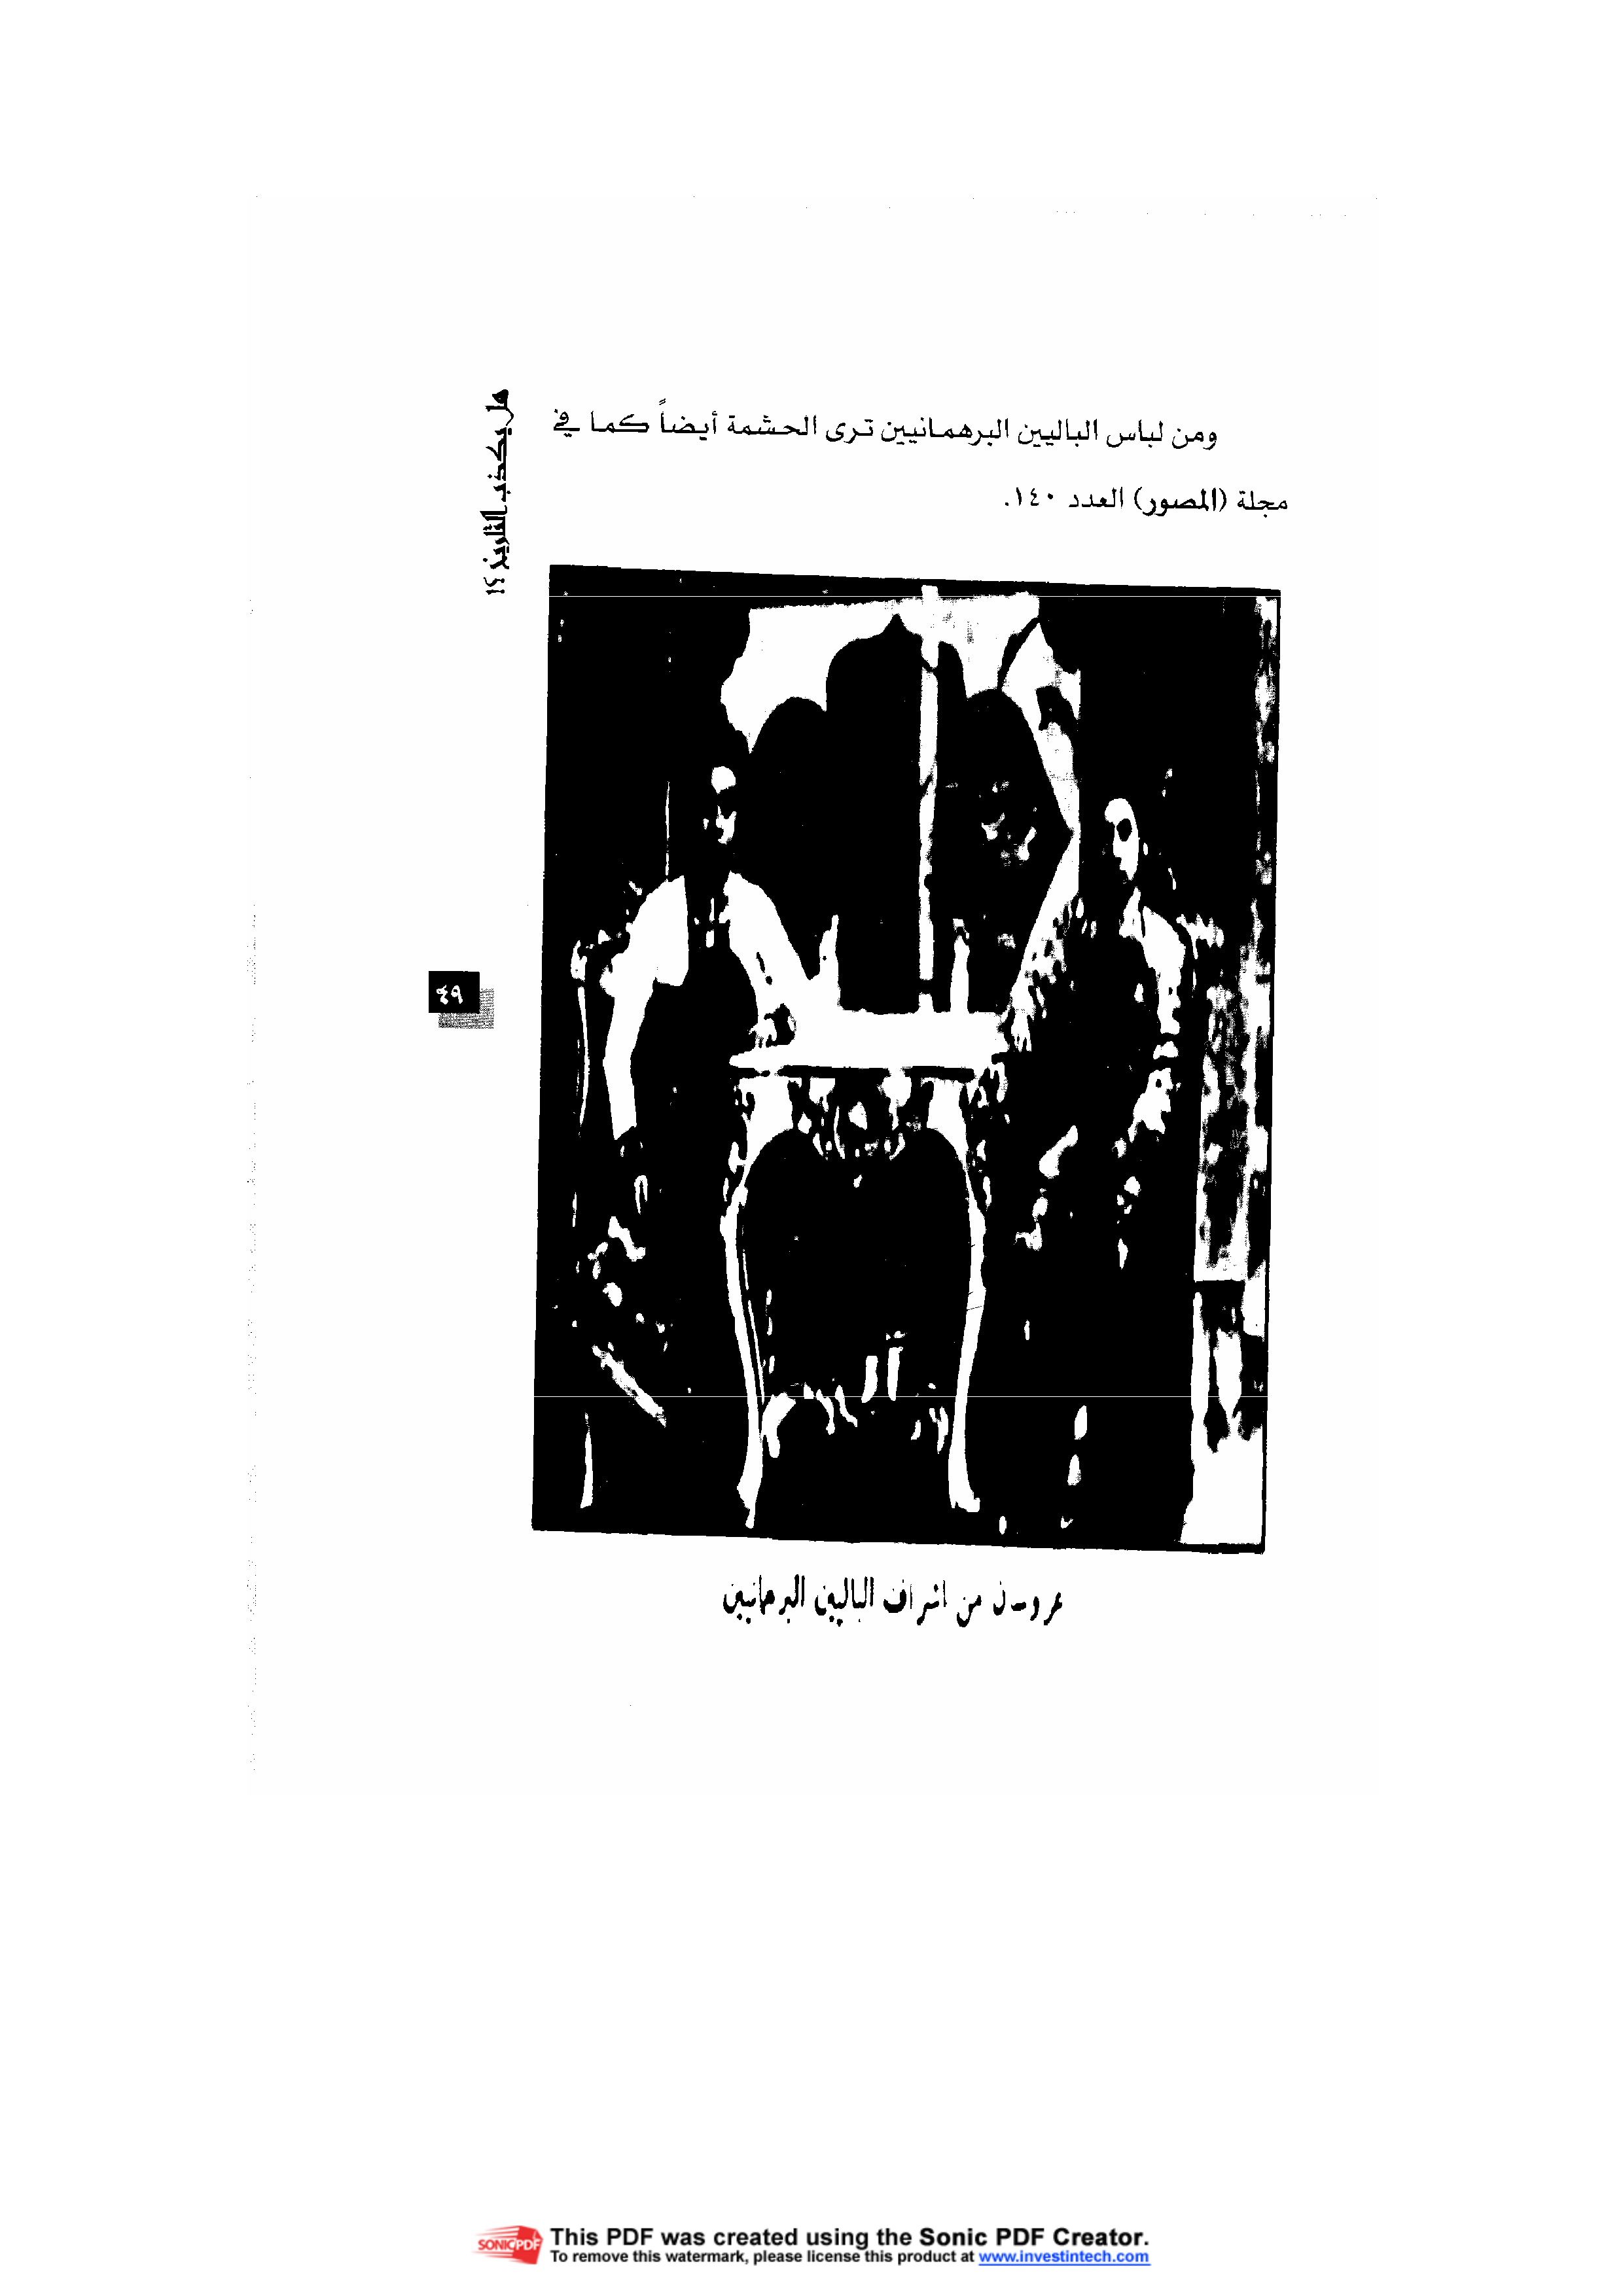 ومن لباس الباليين البرهمانيين ترى الحشمة أيضاً كما في
مجلة (المصور) العدد ١٤٠.
هل يكذب التاريخ ؟!
٤٩
عروسان من اشراف الباليين البرهمانيين
SONICPDF
This PDF was created using the Sonic PDF Creator.
To remove this watermark, please license this product at www.investintech.com